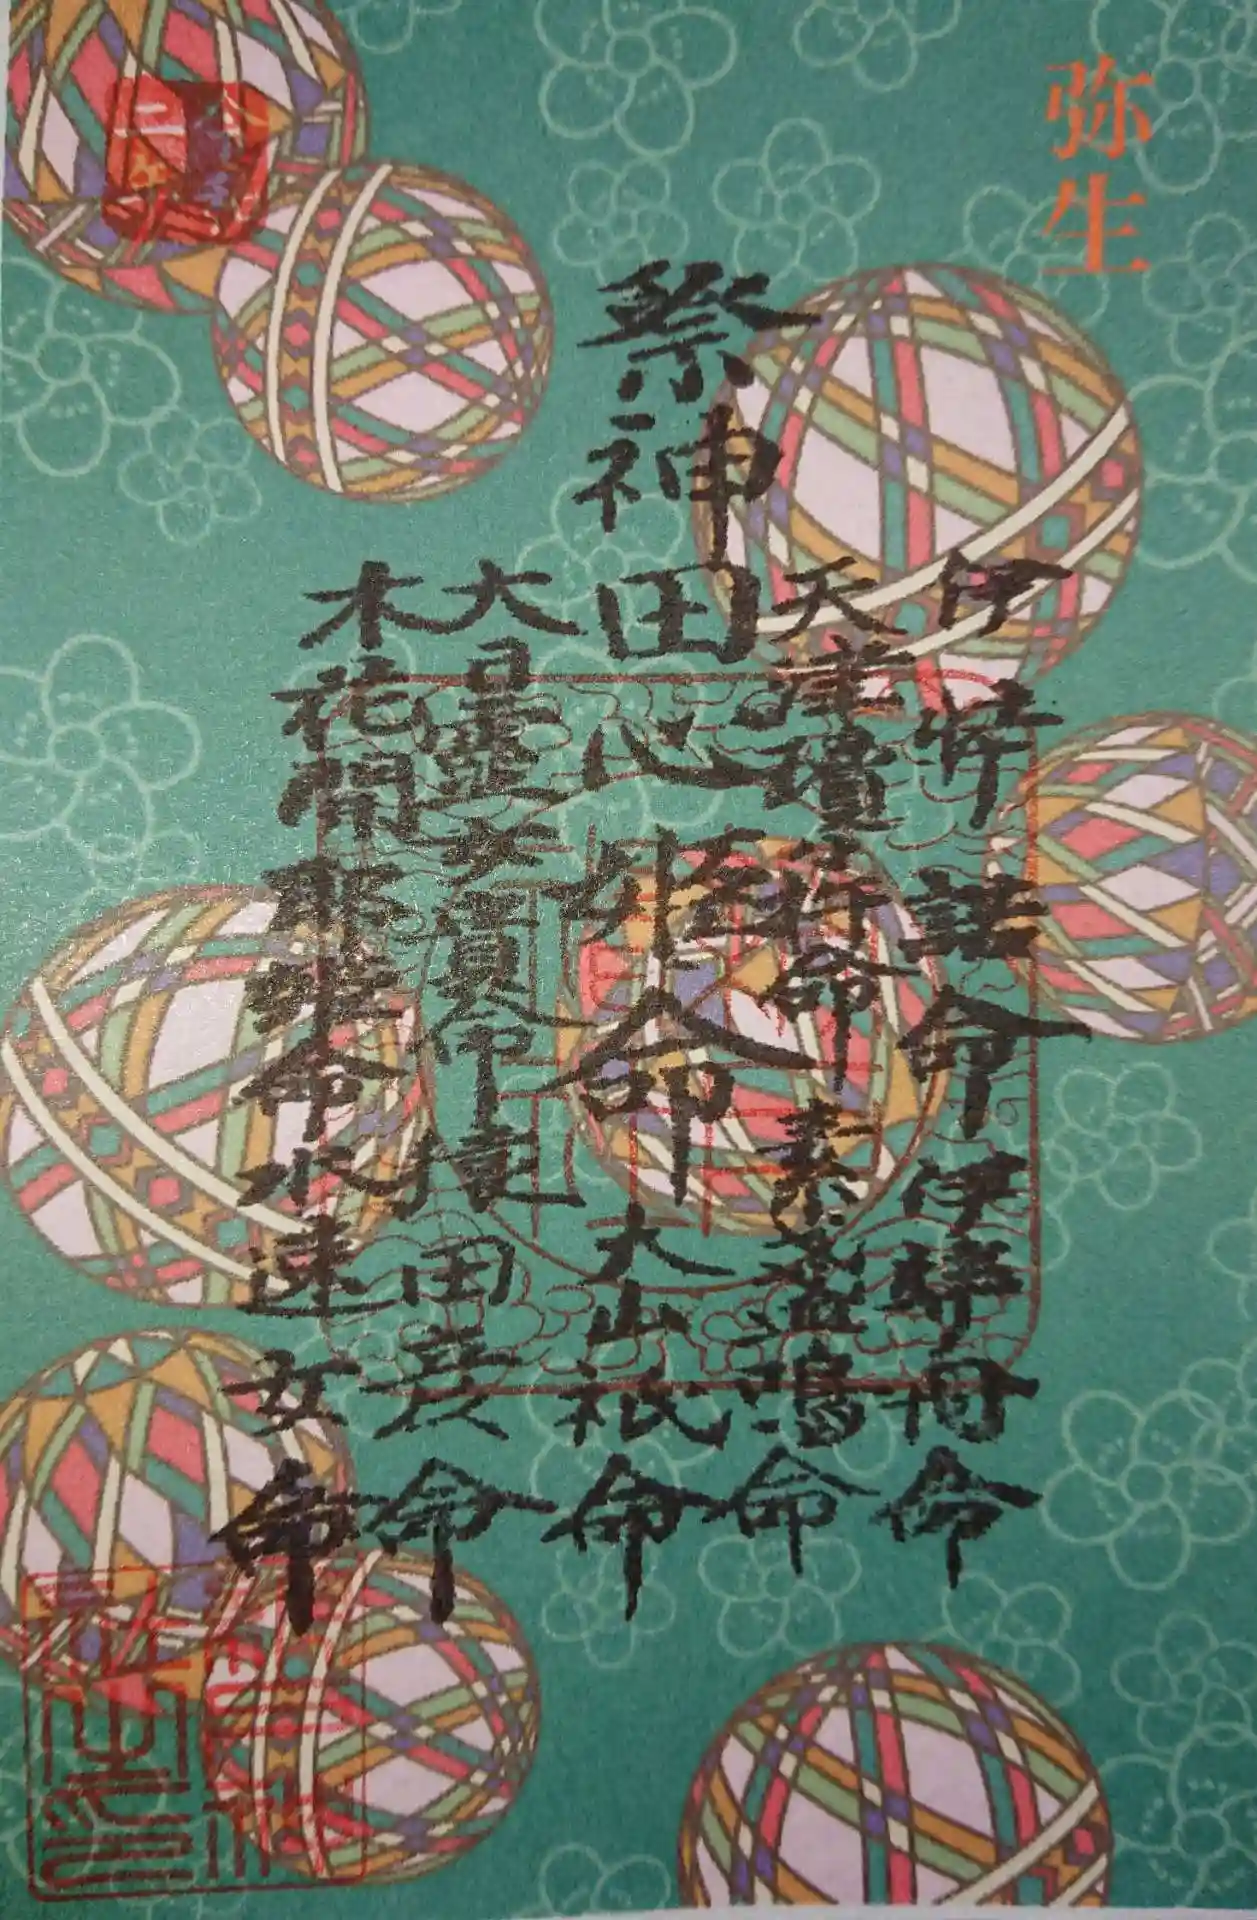 弥生
祭神
伊弉諾命 伊弉冊命
天津瓊々杵命 素盞嗚命
田心姫命 大山祇命
大日孁女貴命 猿田彦命
木花開耶姫命 水速女命